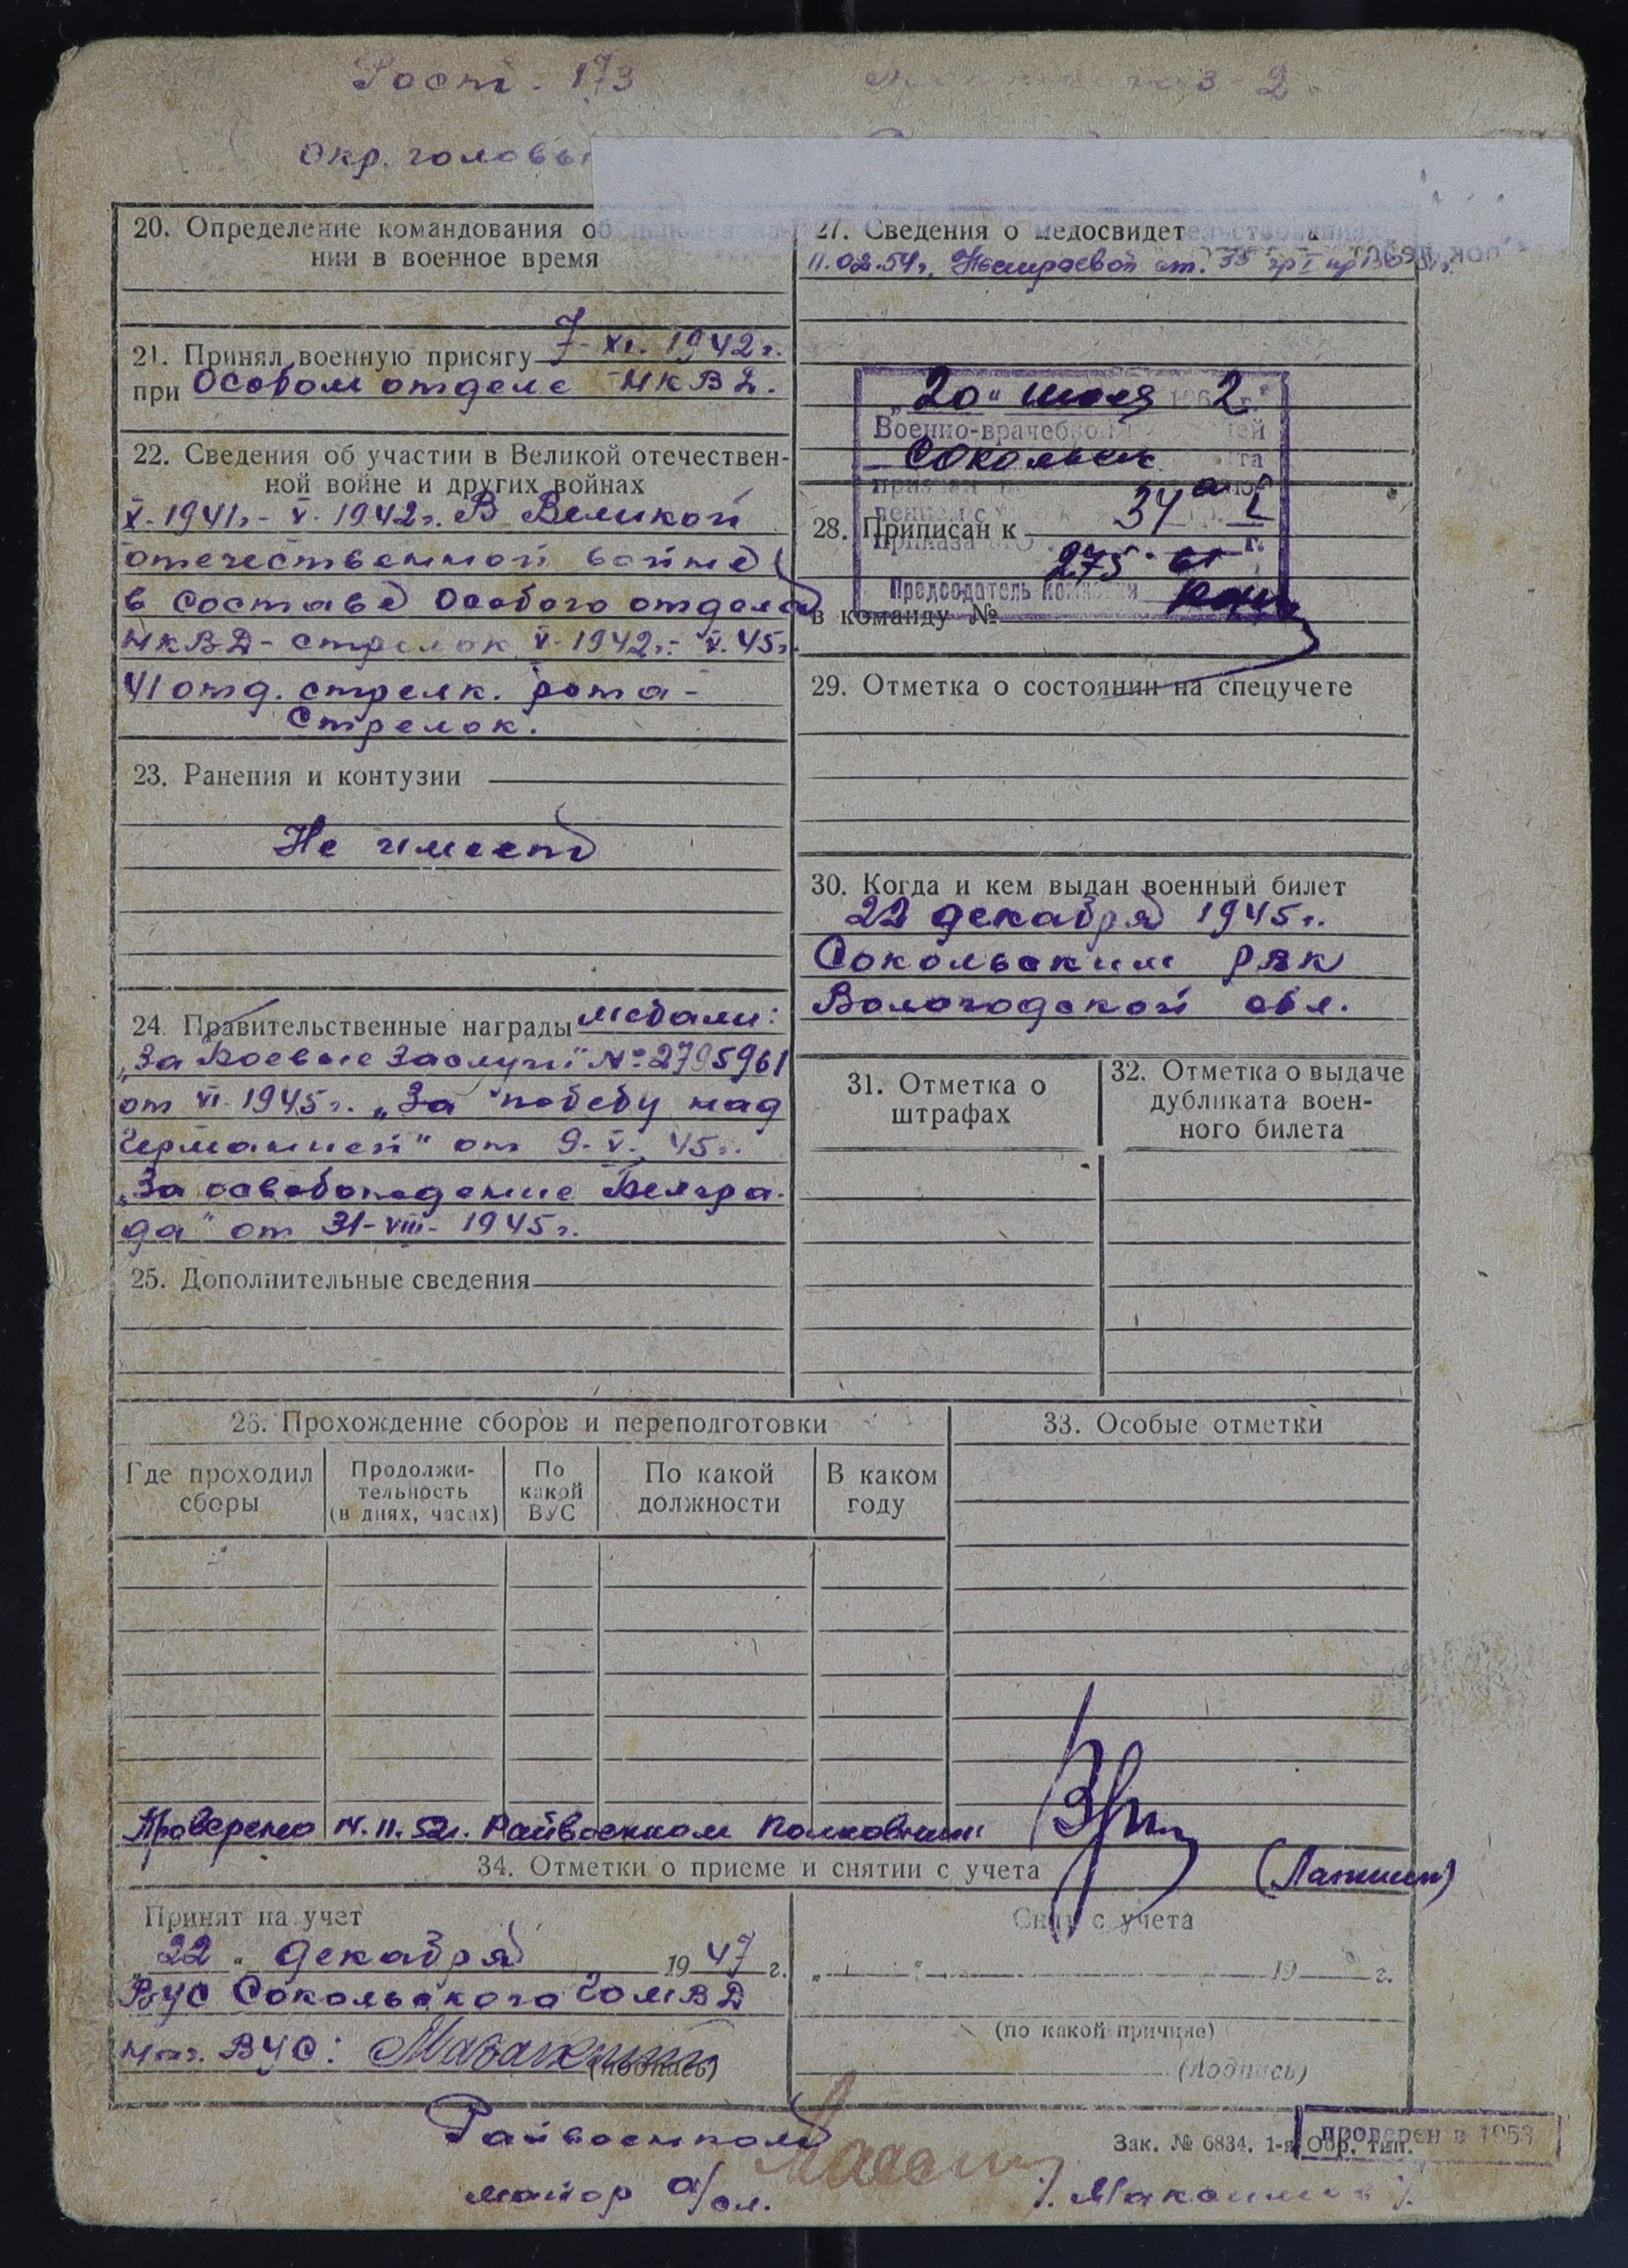 Рост. 173
Окр. головы
20. Определение командования об
нии в военное время
21. Принял военную присягу 7-XI. 1942г.
при Особом отделе НКВД.
22. Сведения об участии в Великой отечествен-
ной войне и других войнах
X-1941г.- V-1942г. В Великой
отечественной войне
в составе Особого отдела
НКВД - стрелок V-1942г.- V.45г.
41 отд. стрелк. рота -
стрелок.
23. Ранения и контузии
Не имеет
24. Правительственные награды медали:
„За боевые заслуги" № 2795961
от VI-1945г. „За победу над
Германией" от 9-V-45г.
„За освобождение Белгра-
да" от 31-VIII-1945г.
25. Дополнительные сведения
26. Прохождение сборов и переподготовки
Где проходил сборы
Продолжи-
тельность
(в днях, часах)
По
какой
ВУС
По какой
должности
В каком
году
Проверено 14.11.52г. Райвоенком Полковник
(Лапшин)
27. Сведения о медосвидетельствованиях
11.02.54г. ст. 35 гр I пр
„20" июля 196 2 г.
Военно-врачебной
Сокольск
34 а I
Приказа 275 г.
Председатель комиссии
28. Приписан к
в команду №
29. Отметка о состоянии на спецучете
30. Когда и кем выдан военный билет
22 декабря 1945г.
Сокольским РВК
Вологодской обл.
31. Отметка о
штрафах
32. Отметка о выдаче
дубликата воен-
ного билета
33. Особые отметки
34. Отметки о приеме и снятии с учета
Принят на учет
„22" декабря 1947 г.
ВУС Сокольского ГОМВД
Нач. ВУС:
(подпись)
Снят с учета
„ " 19 г.
(по какой причине)
(Подпись)
Райвоенком
майор а/сл.
/. Максимов /.
Зак. № 6834. 1-я Обр. тип.
проверен в 1953